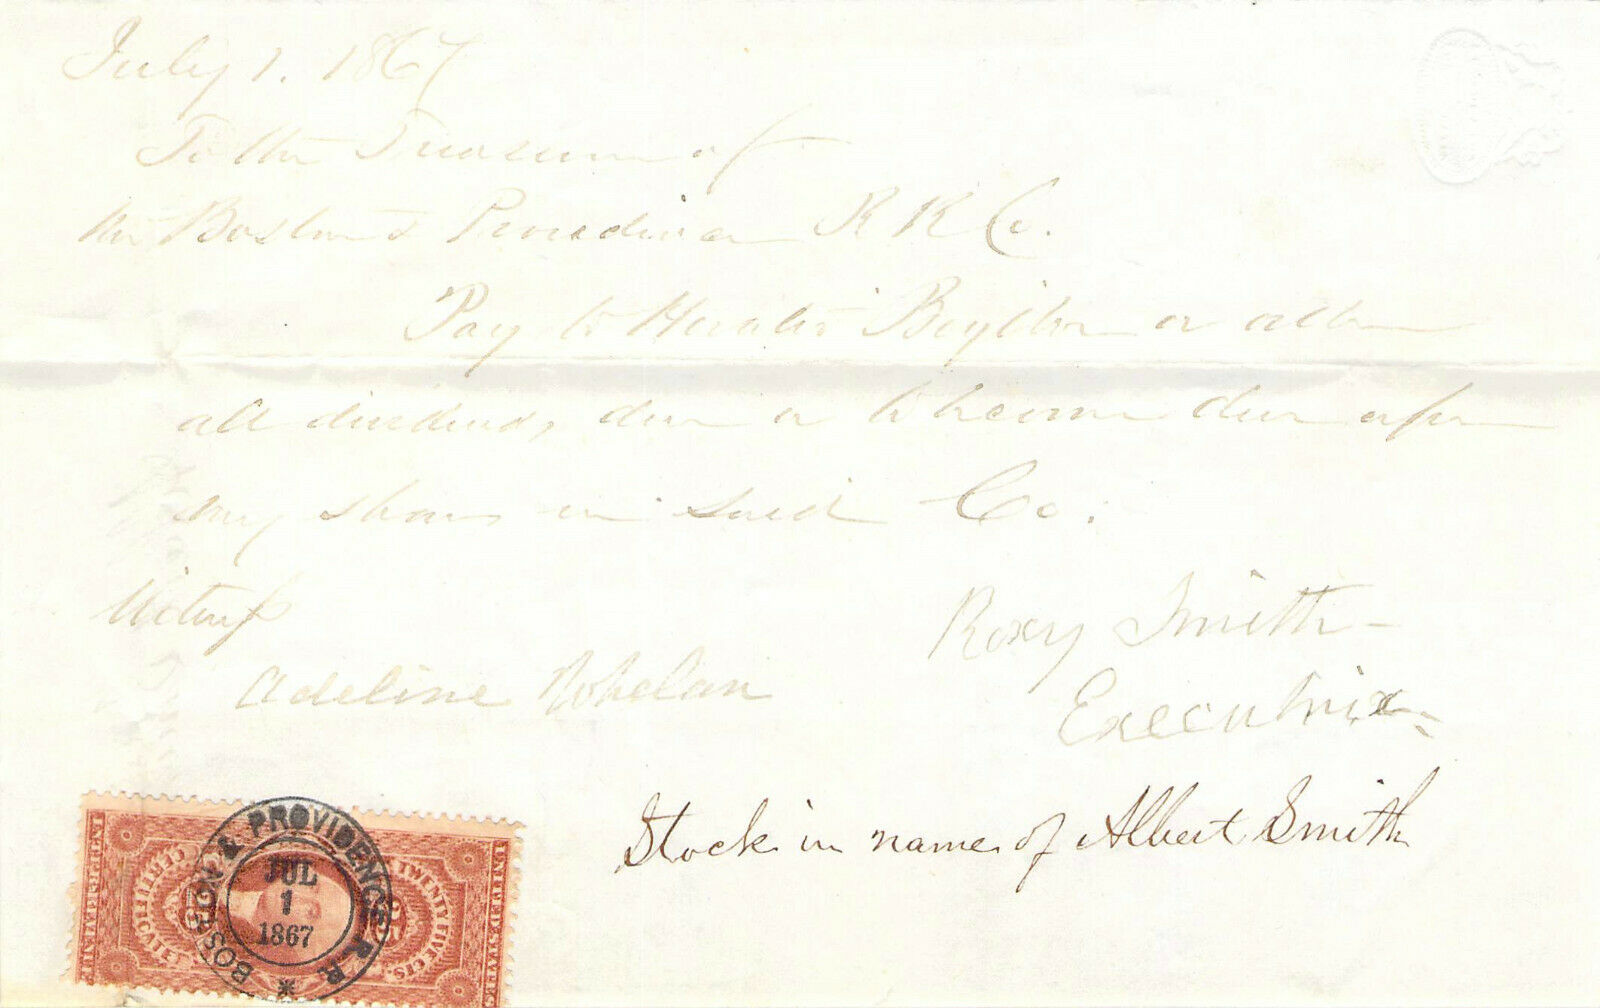 July 1. 1867
To the Treasurer of
the Boston & Providence R R Co.
Pay to Horatio or order
all dividends, due or to become due upon
my shares in said Co.
Witness
Roxy Smith
Adeline Whelan
Executrix
Stock in name of Albert Smith
BOSTON & PROVIDENCE R. R.
JUL
1
1867
INTER. REVENUE
CERTIFICATE
25
TWENTY FIVE CTS.
25
UNITED STATES